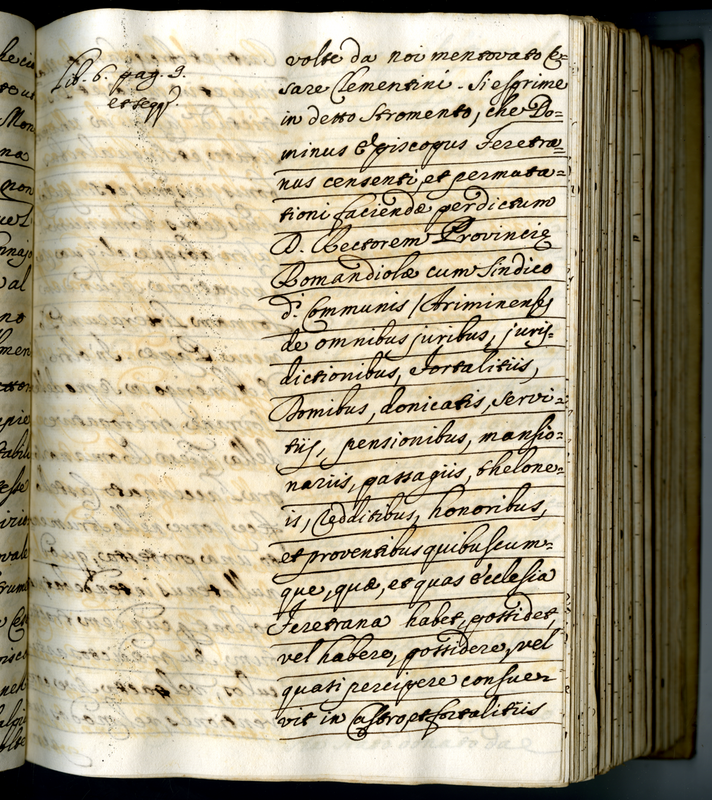 Lib. 6. pag. 9.
et seqq.
volte da noi mentovato Ce-
sare Clementini. Si esprime
in detto Stromento, che Do=
minus Episcopus Feretra=
nus censenti, et permuta=
tioni faciendæ per dictum
D. Rectorem Provinciæ
Romandiolæ cum Sindico
d. Communis Ariminensis
de omnibus juribus, juris=
dictionibus, Fortalitiis,
Domibus, donicatis, servi=
tiis, pensionibus, mansio=
nariis, passagiis, thelone=
is, Redditibus, honoribus,
et proventibus quibuscum=
que, quæ, et quas Ecclesia
Feretrana habet, possidet,
vel habere, possidere, vel
quasi percipere consue=
vit in Castro, et fortalitiis